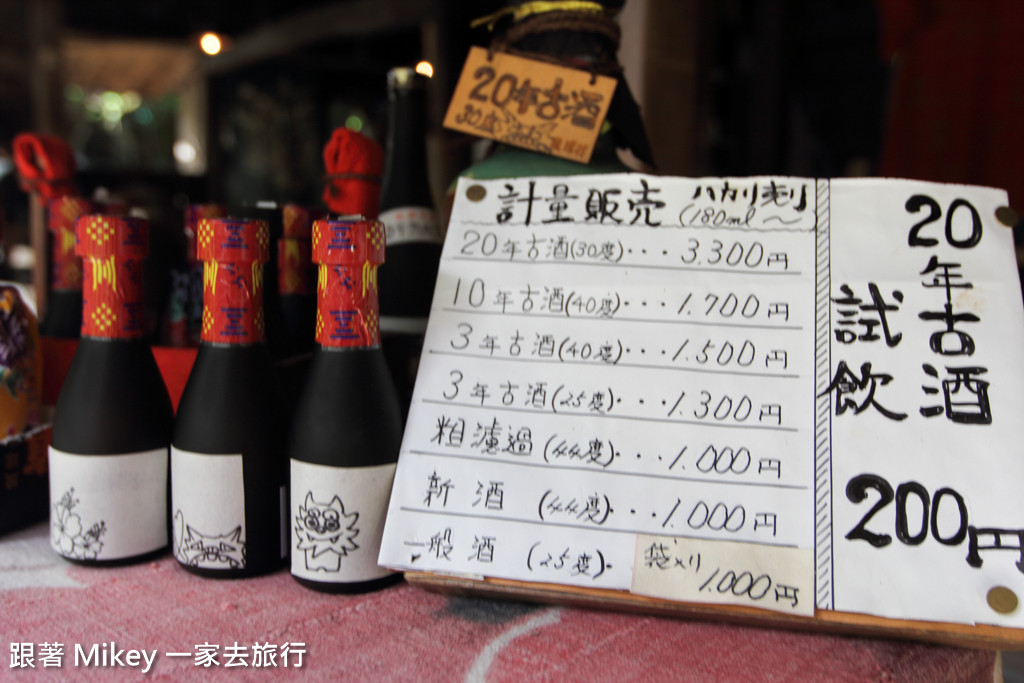 20年古酒
30度
計量販売 ハカリ売り
(180ml～)
20年古酒(30度)・・・3.300円
10年古酒(40度)・・・1.700円
3年古酒(40度)・・・1.500円
3年古酒(25度)・・・1.300円
粗濾過(44度)・・・1.000円
新酒(44度)・・・1.000円
一般酒(25度)・
袋入り
1.000円
20年古酒
試飲
200円
跟著 Mikey 一家去旅行